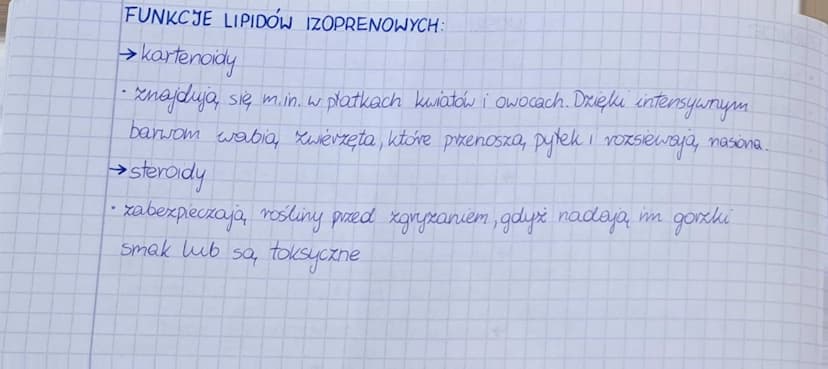 FUNKCJE LIPIDÓW IZOPRENOWYCH:
→ kartenoidy
• znajdują się m.in. w płatkach kwiatów i owocach. Dzięki intensywnym
barwom wabią zwierzęta, które przenoszą pyłek i rozsiewają nasiona.
→ steroidy
• zabezpieczają rośliny przed zgryzaniem, gdyż nadają im gorzki
smak lub są toksyczne